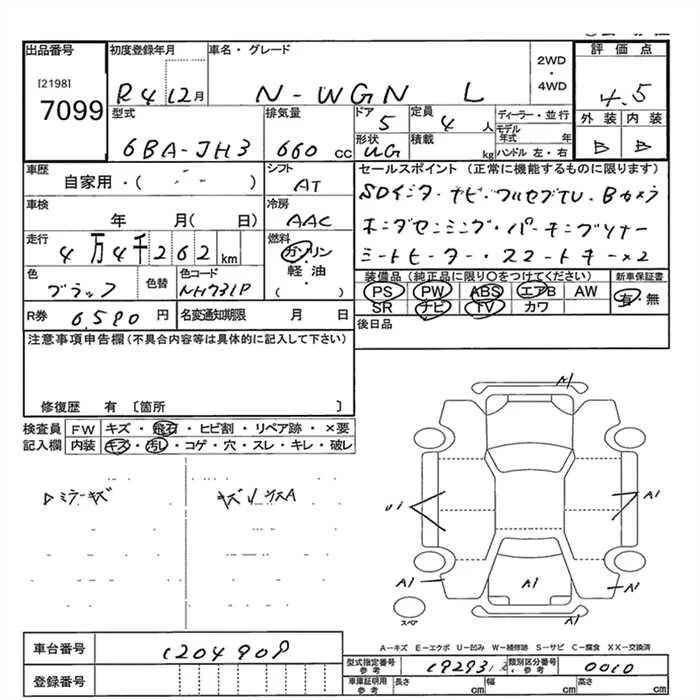 出品番号
[2198]
7099
初度登録年月
R4 12月
車名・グレード
N-WGN L
2WD
・
4WD
評価点
4.5
外装 内装
B B
型式
6BA-JH3
排気量
660 cc
ドア
5
定員
4 人
形状
UG
積載
kg
ディーラー・並行
モデル年式 年
ハンドル 左・右
車歴
自家用・( )
シフト
AT
車検
年 月( 日)
冷房
AAC
走行
4万4千262 km
燃料
ガソリン
・
軽油
( )
色
ブラック
色替
色コード
NH731P
R券 6,590 円
名変通知期限 月 日
セールスポイント (正常に機能するものに限ります)
SDインターナビ・フルセグTV・Bカメラ
ホンダセンシング・パーキングソナー
シートヒーター・スマートキー×2
装備品 (純正品に限り○をつけてください)
PS PW ABS エアB AW
SR ナビ TV カワ
新車保証書
有・無
後日品
注意事項申告欄 (不具合内容等は具体的に記入して下さい)
修復歴 有 〔箇所 〕
検査員 FW キズ・飛石・ヒビ割・リペア跡・×要
記入欄 内装 キズ・汚れ・コゲ・穴・スレ・キレ・破レ
ミラーキズ
A1
U1
A1
A1
A1
A1
A1
スペア
A-キズ E-エクボ U-凹み W-補修跡 S-サビ C-腐食 XX-交換済
車台番号
1204909
登録番号
型式指定番号 参考
類別区分番号 参考
0010
車庫証明用 参考
長さ cm
幅 cm
高さ cm